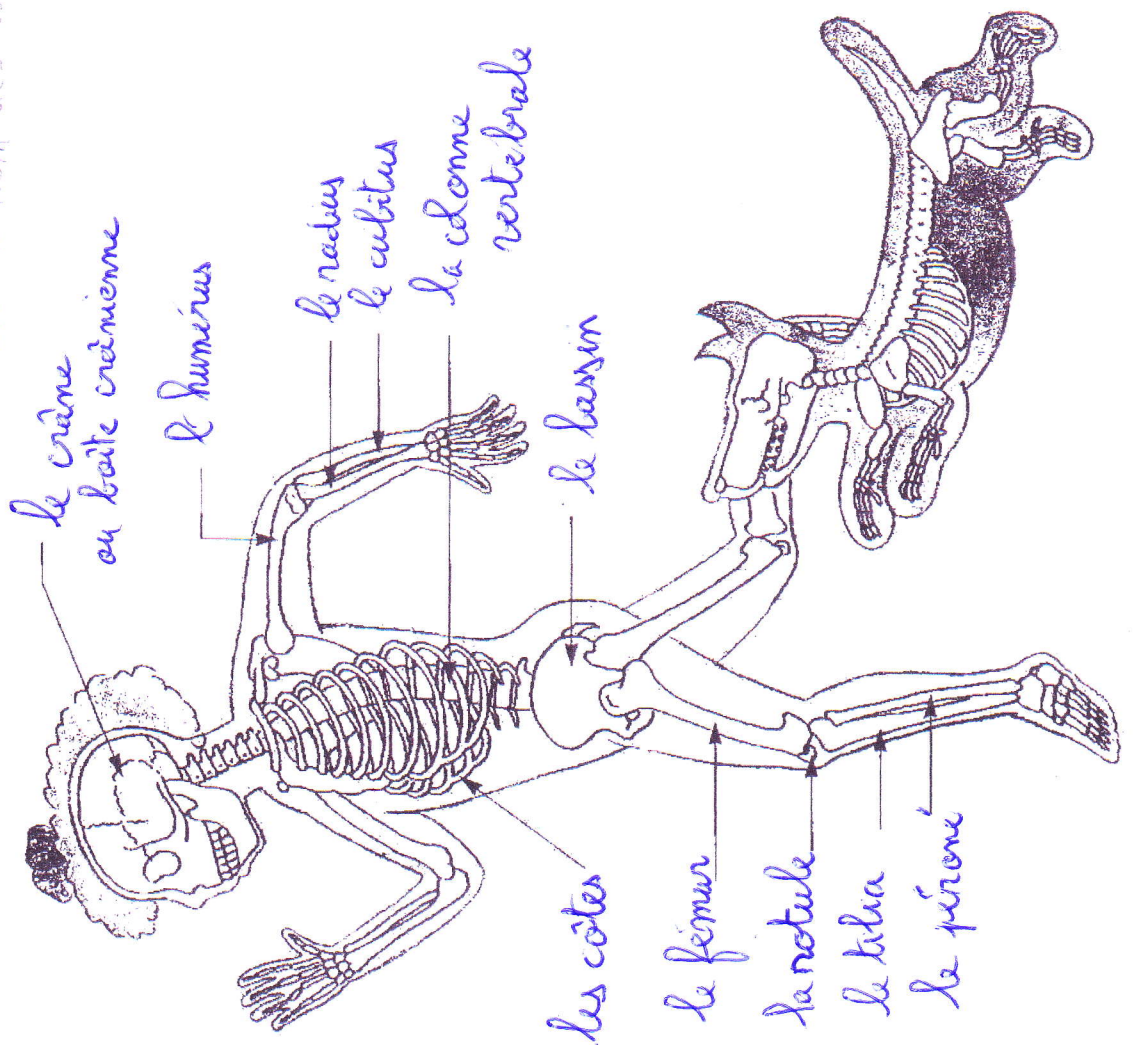 le crâne
ou boîte crânienne
l'humérus
le radius
le cubitus
la colonne
vertébrale
le bassin
les côtes
le fémur
la rotule
le tibia
le péroné